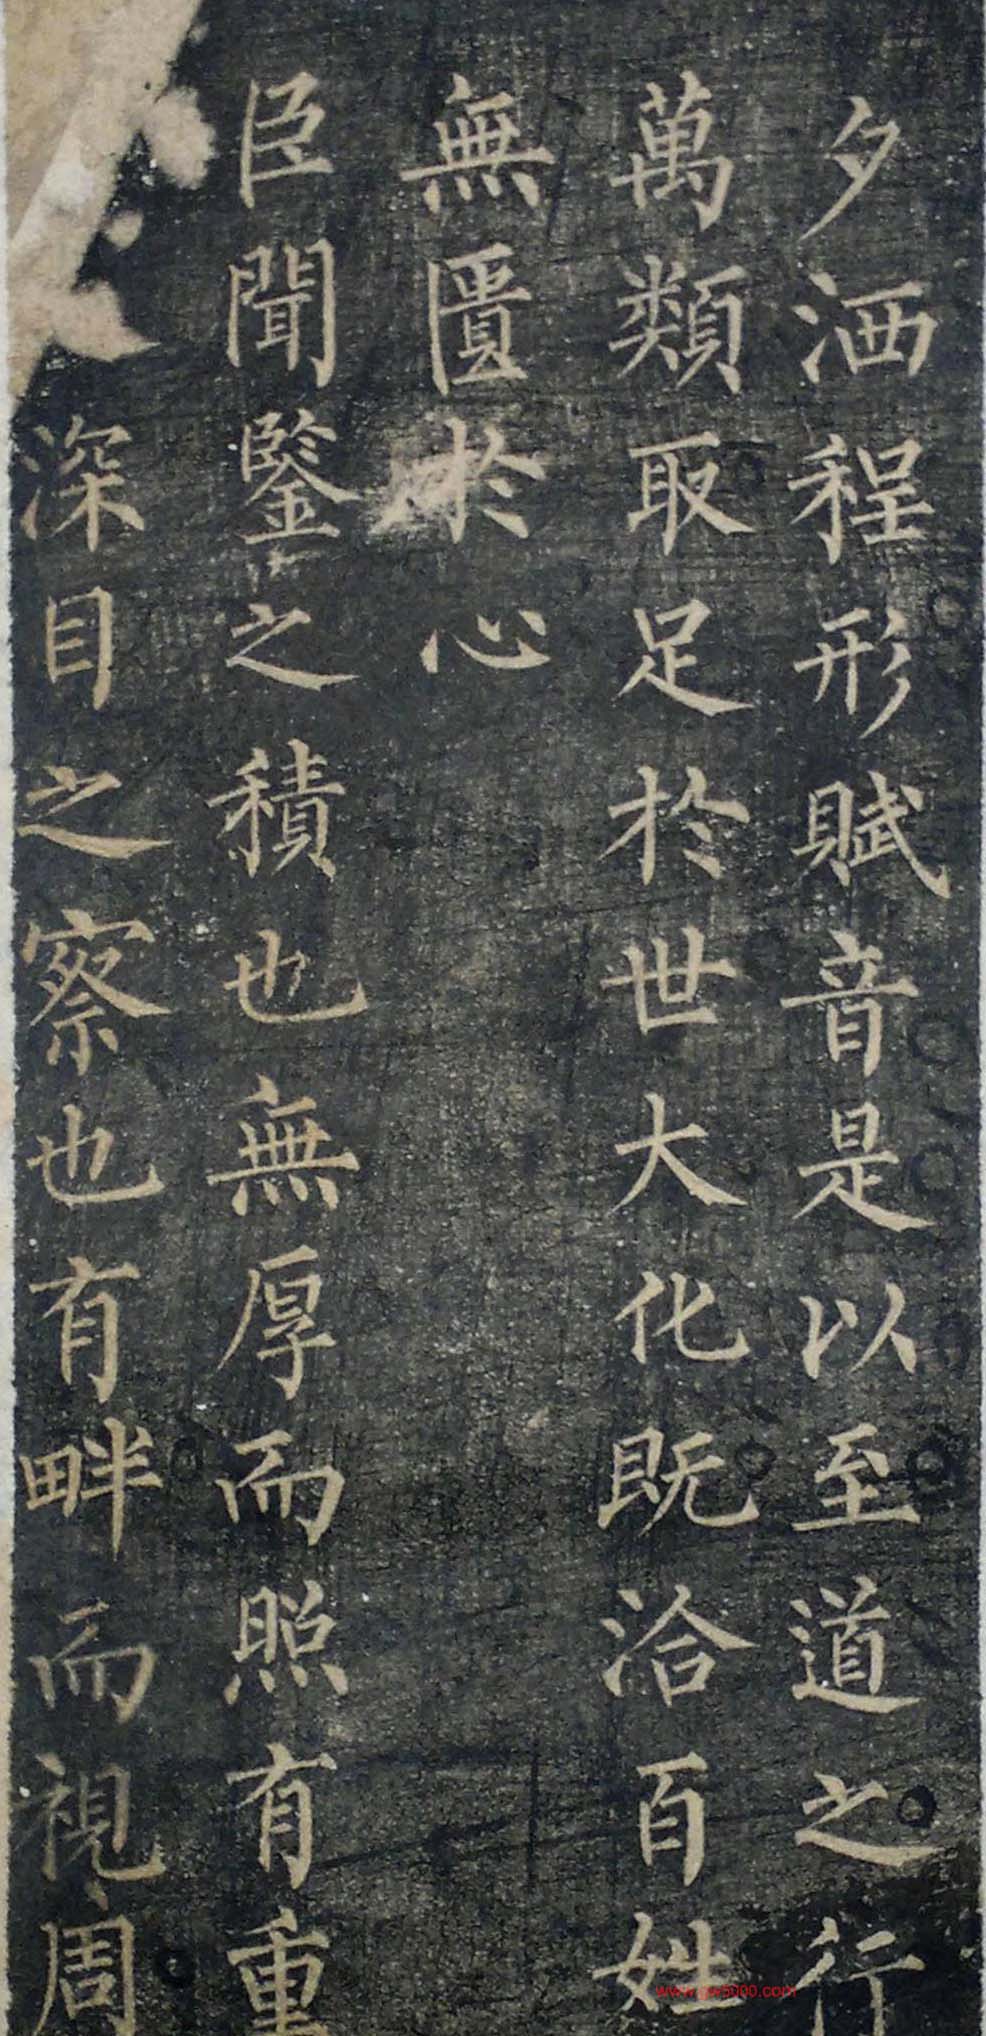 夕洒程形賦音是以至道之行
萬類取足於世大化既洽百姓
無匱於心
臣聞鑒之積也無厚而照有重
深目之察也有畔而視周
www.yw5000.com